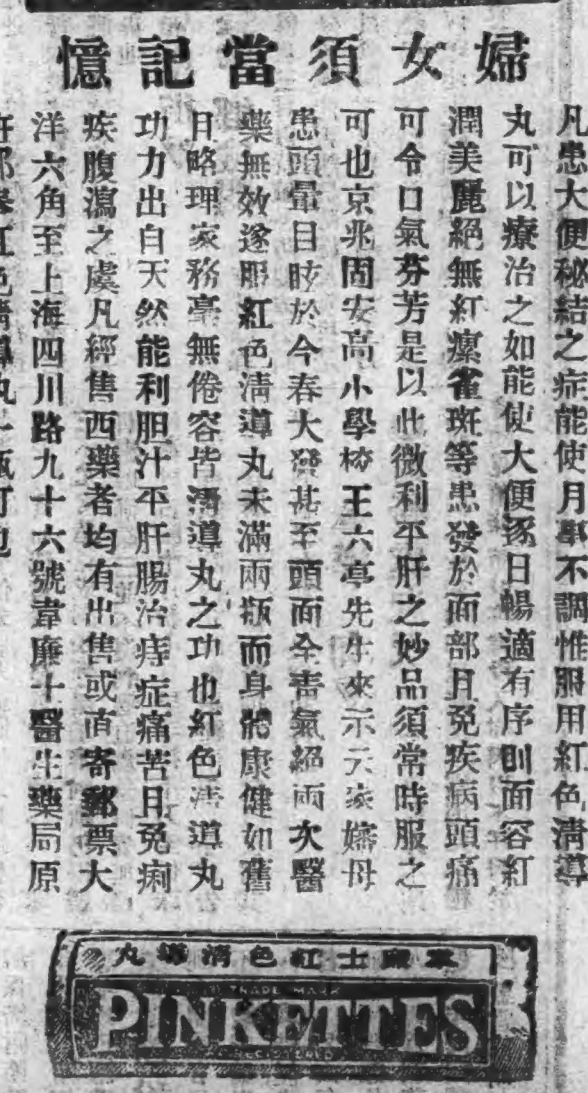 婦女須當記憶
凡患大便秘結之症能使月事不調惟服用紅色清導
丸可以療治之如能使大便逐日暢適有序則面容紅
潤美麗絕無紅瘰雀斑等患發於面部且免疾病頭痛
可令口氣芬芳是以此微利平肝之妙品須常時服之
可也京兆固安高小學校王六亭先生來示云家嬸母
患頭暈目眩於今春大發甚至頭面全青氣絕兩次醫
藥無效遂服紅色清導丸未滿兩瓶而身體康健如舊
日略理家務毫無倦容皆清導丸之功也紅色清導丸
功力出自天然能利胆汁平肝腸治痔症痛苦且免痢
疾腹瀉之虞凡經售西藥者均有出售或直寄郵票大
洋六角至上海四川路九十六號韋廉士醫生藥局原
紅色清導丸一瓶可也
韋廉士紅色清導丸
TRADE MARK
PINKETTES
REGISTERED